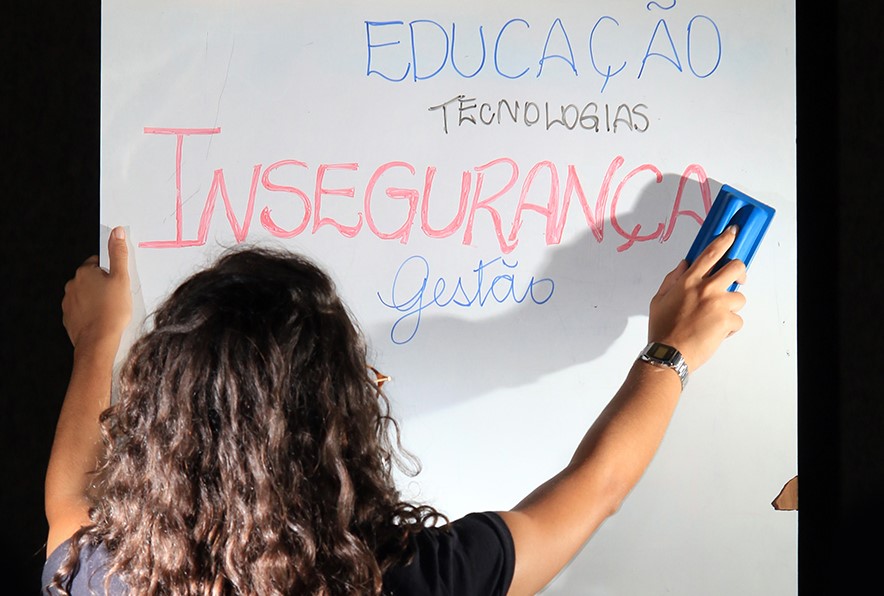 EDUCAÇÃO
TECNOLOGIAS
INSEGURANÇA
Gestão